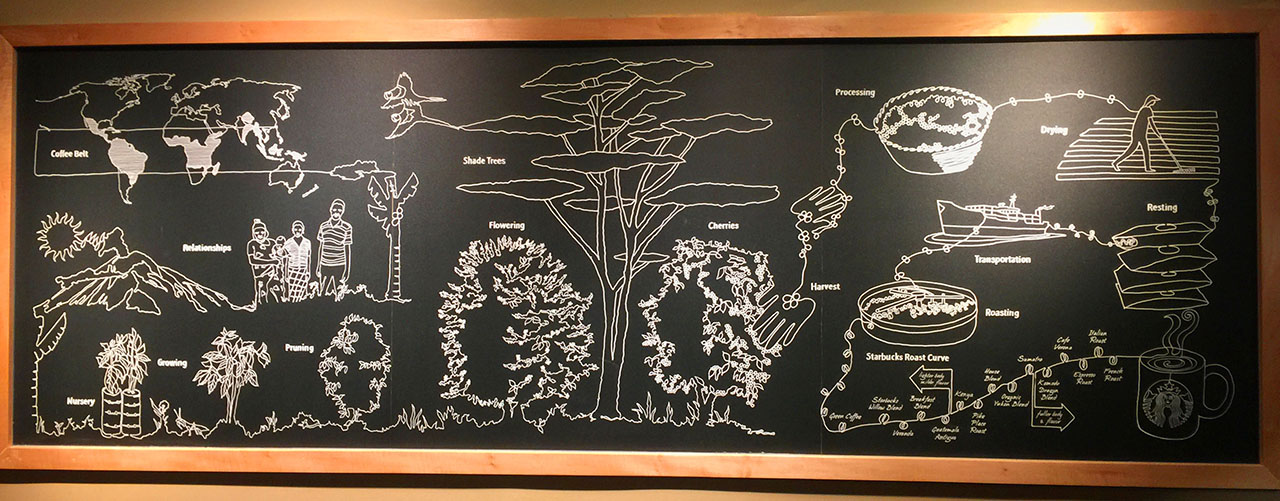 Coffee Belt
Relationships
Nursery
Growing
Pruning
Shade Trees
Flowering
Cherries
Harvest
Processing
Drying
Resting
Transportation
Roasting
Starbucks Roast Curve
lighter body
milder flavor
Green Coffee
Starbucks
Willow Blend
Veranda
Breakfast
Blend
Guatemala
Antigua
Kenya
Pike
Place
Roast
House
Blend
Organic
Yukon Blend
Sumatra
Komodo
Dragon
Blend
fuller body
& flavor
Cafe
Verona
Espresso
Roast
Italian
Roast
French
Roast